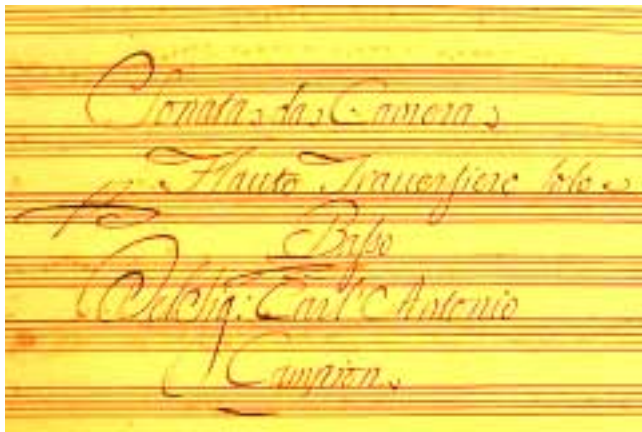 Sonata da Camera
Flauto Trauersiere Solo e
Basso
Del Sig: Carl'Antonio
Campion